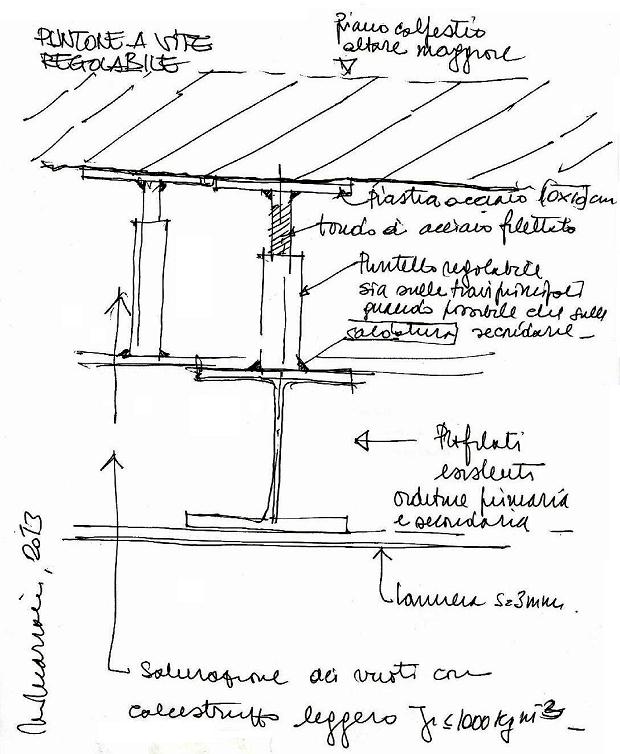 PUNTONE A VITE
REGOLABILE
piano calpestio
altare maggiore
piastra acciaio 10x10 cm
tondo di acciaio filettato
Puntello regolabile
sia sulle travi principali
quando possibile che sulle
saldatura secondarie
Profilati
esistenti
orditure primaria
e secondaria
lamiera s=3mm.
Saturazione dei vuoti con
calcestruzzo leggero γ ≤ 1000 kg m³
2013